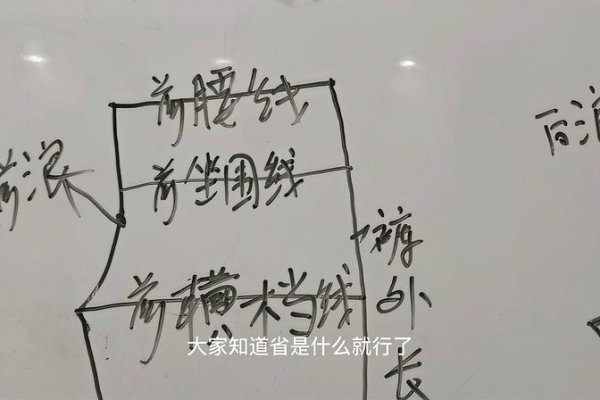 前腰线
前坐围线
前浪
后浪
裤外长
前横档线
大家知道省是什么就行了